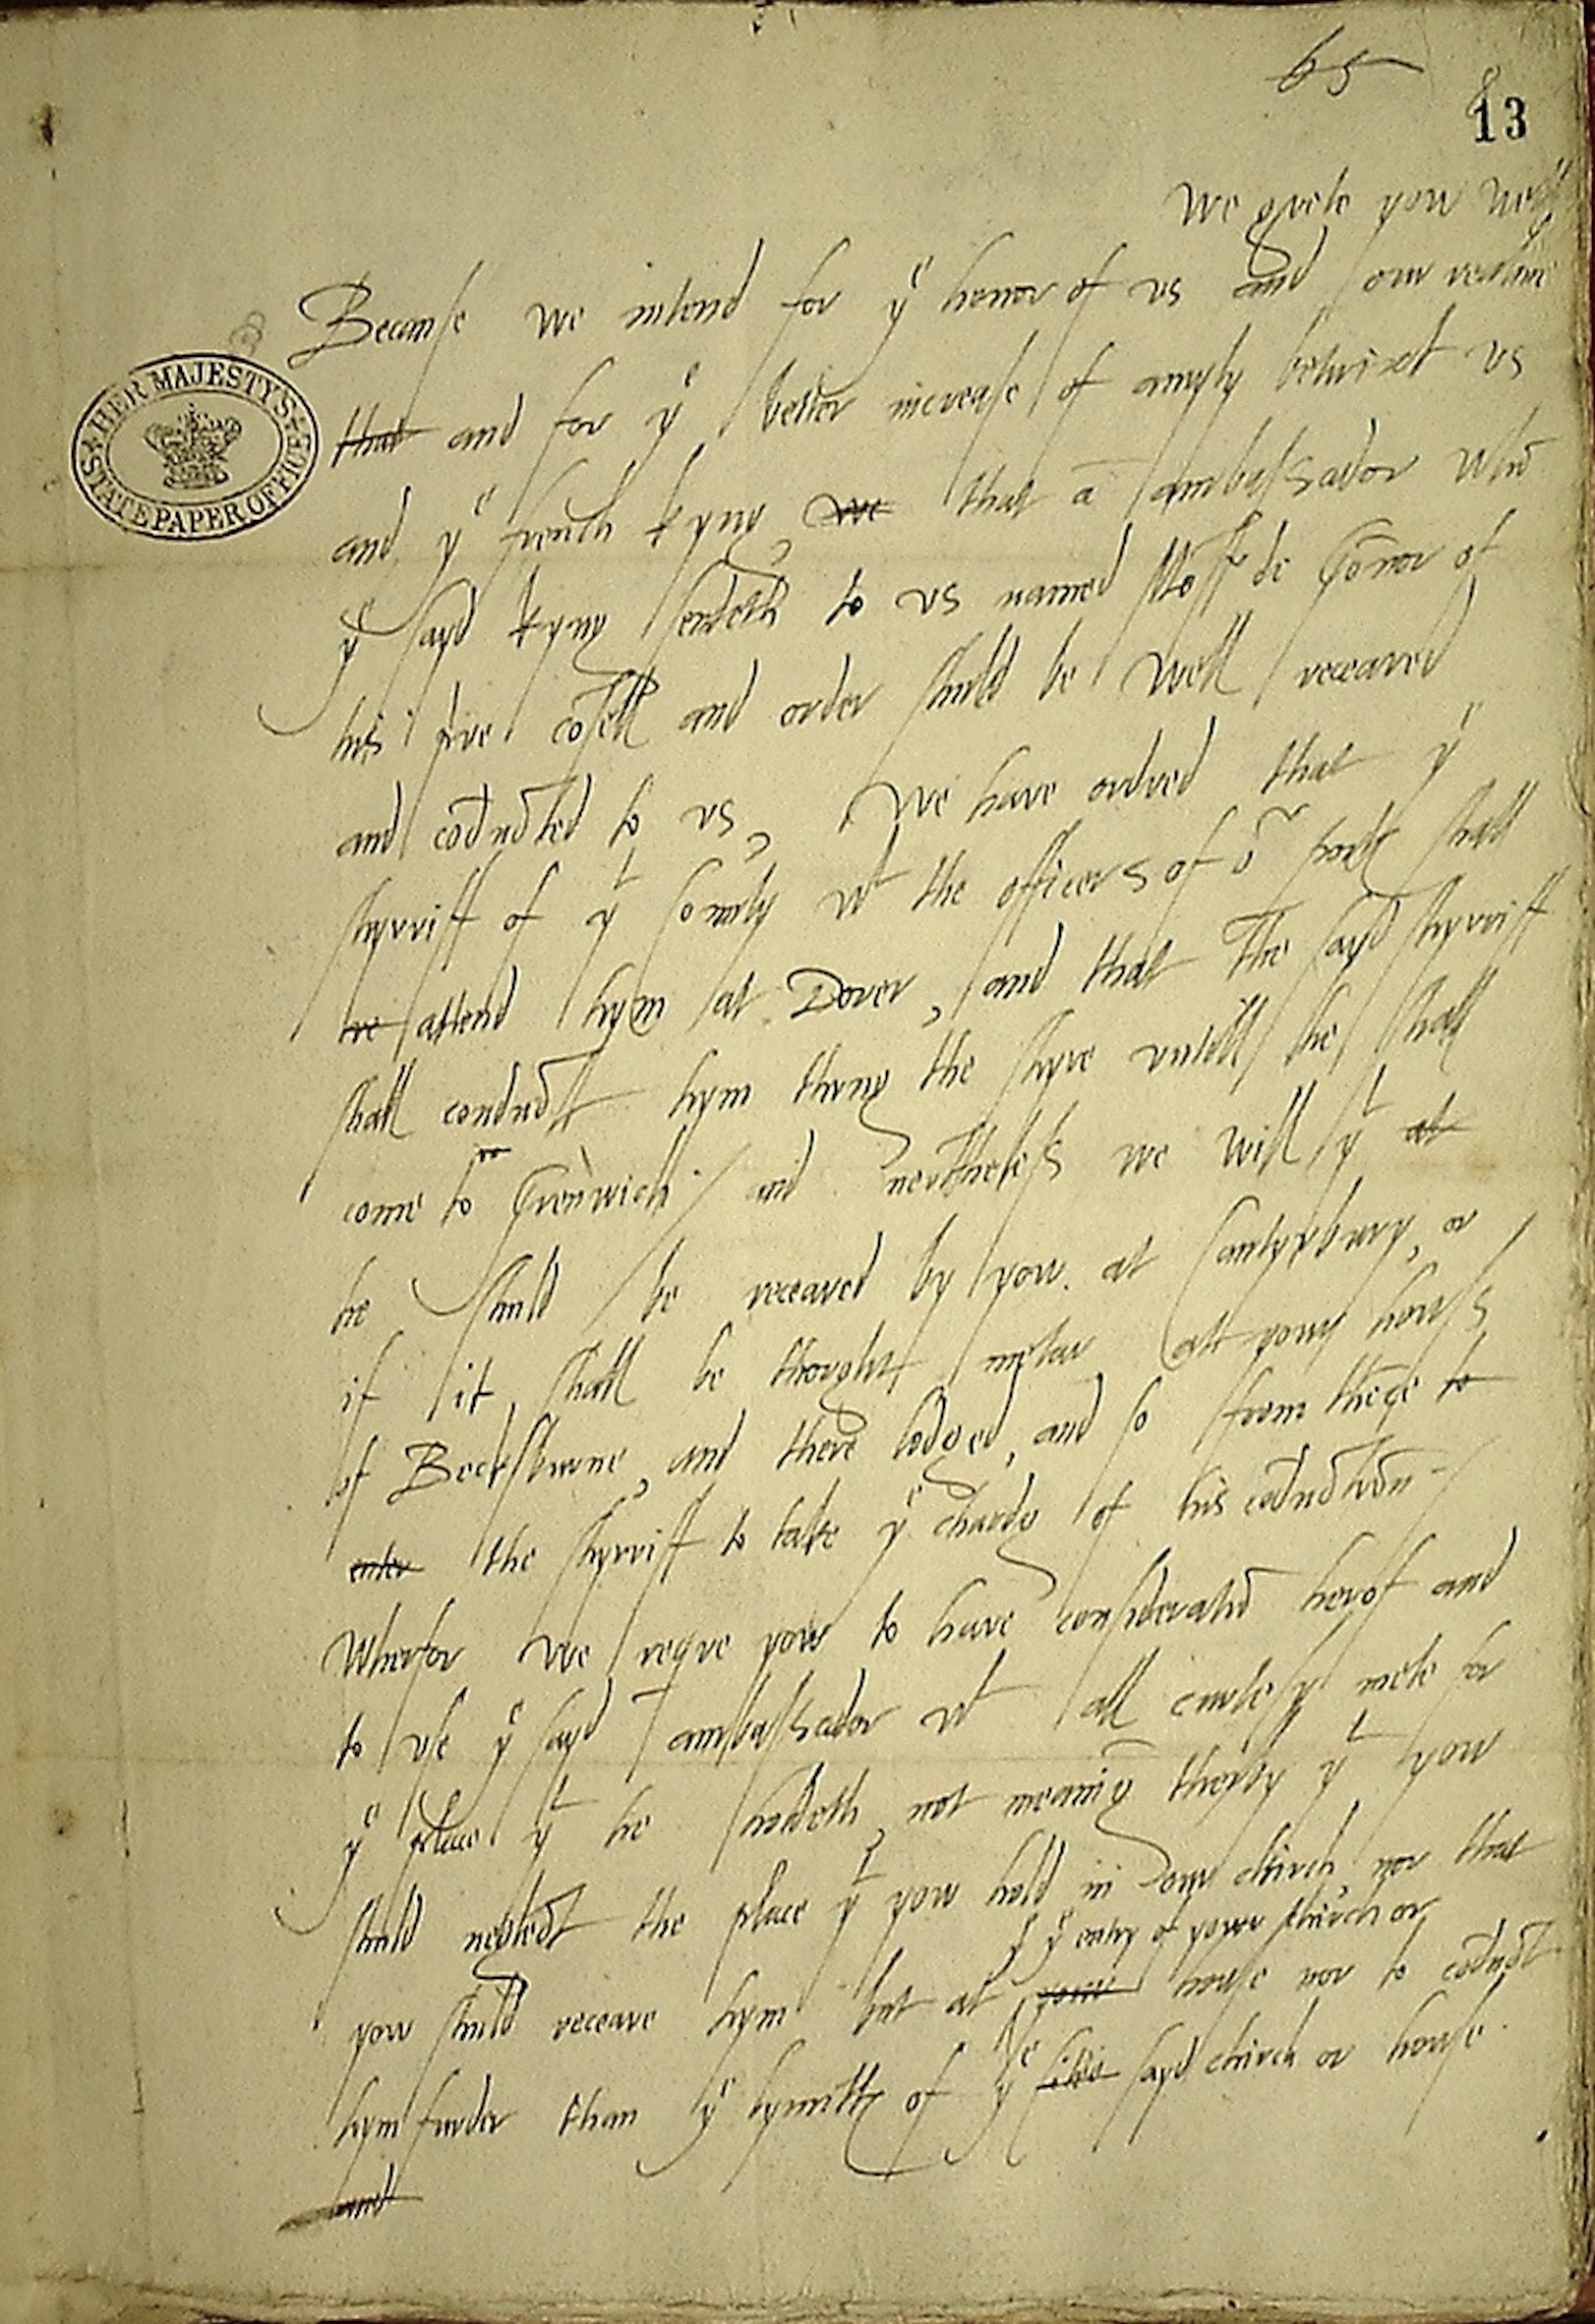 65
13
We grete yow well
Because we intend for yͤ honor of vs and our realme
that and for yͤ better increase of amyty betwixt vs
and yͤ french kyng, we that ā ambassador whō
yͤ sayd kyng sendeth to vs named Mōsr de Gōnor of
his prive cōsell and order shuld be well receaved
and cōducted to vs, We have ordred that yͤ
shyrriff of yᵗ county wᵗ the officers of oʳ portes shall
re attend hym at Dover, and that the sayd shyrriff
shall conduct hym thrug the shyre untill he shall
come to Grenwich / and nevertheless we will yᵗ at
he shuld be receaved by yow at Cantyrbury, or
if it shall be thought metar att your howss
of Beckssburne, and there lodged, and so from thēce to
enter the shyrriff to take yͤ chardg of his cōductiōn /
Wherfor we reqre yow to have consideratiō herof and
to use yͤ sayd ambassador wᵗ all curtesy mete for
yͤ place yᵗ he holdeth, not meanīg therby yᵗ yow
shuld neglect the place yᵗ yow hold in our chirch, nor that
yͤ entry of your chirch or
yow shuld receave hym but at your house nor to cōduct
hym furder than yͤ lymittes of yͤ sayd chirch or howse.
and
HER MAJESTY'S STATE PAPER OFFICE